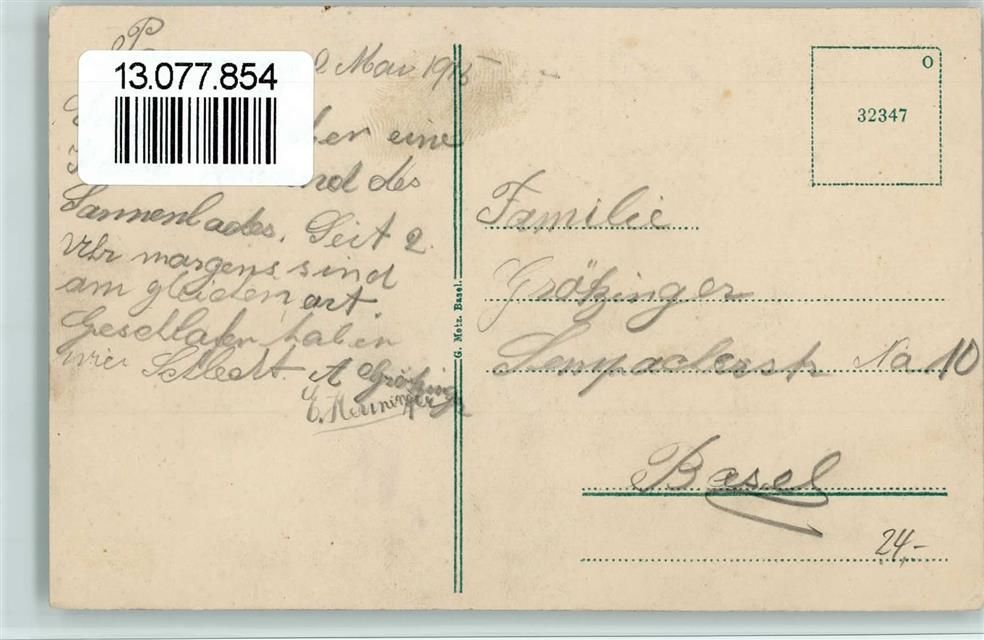 13.077.854
Mai 1915
eine
des
Sannenbades. Seit 2
Uhr margens sind
am gleichen art.
Geschlafen haben
wir Schlecht. A Grötzinger
E. Henninger
G. Metz, Basel.
O
32347
Familie
Grötzinger
Sempacherstr No 10
Basel
24.-